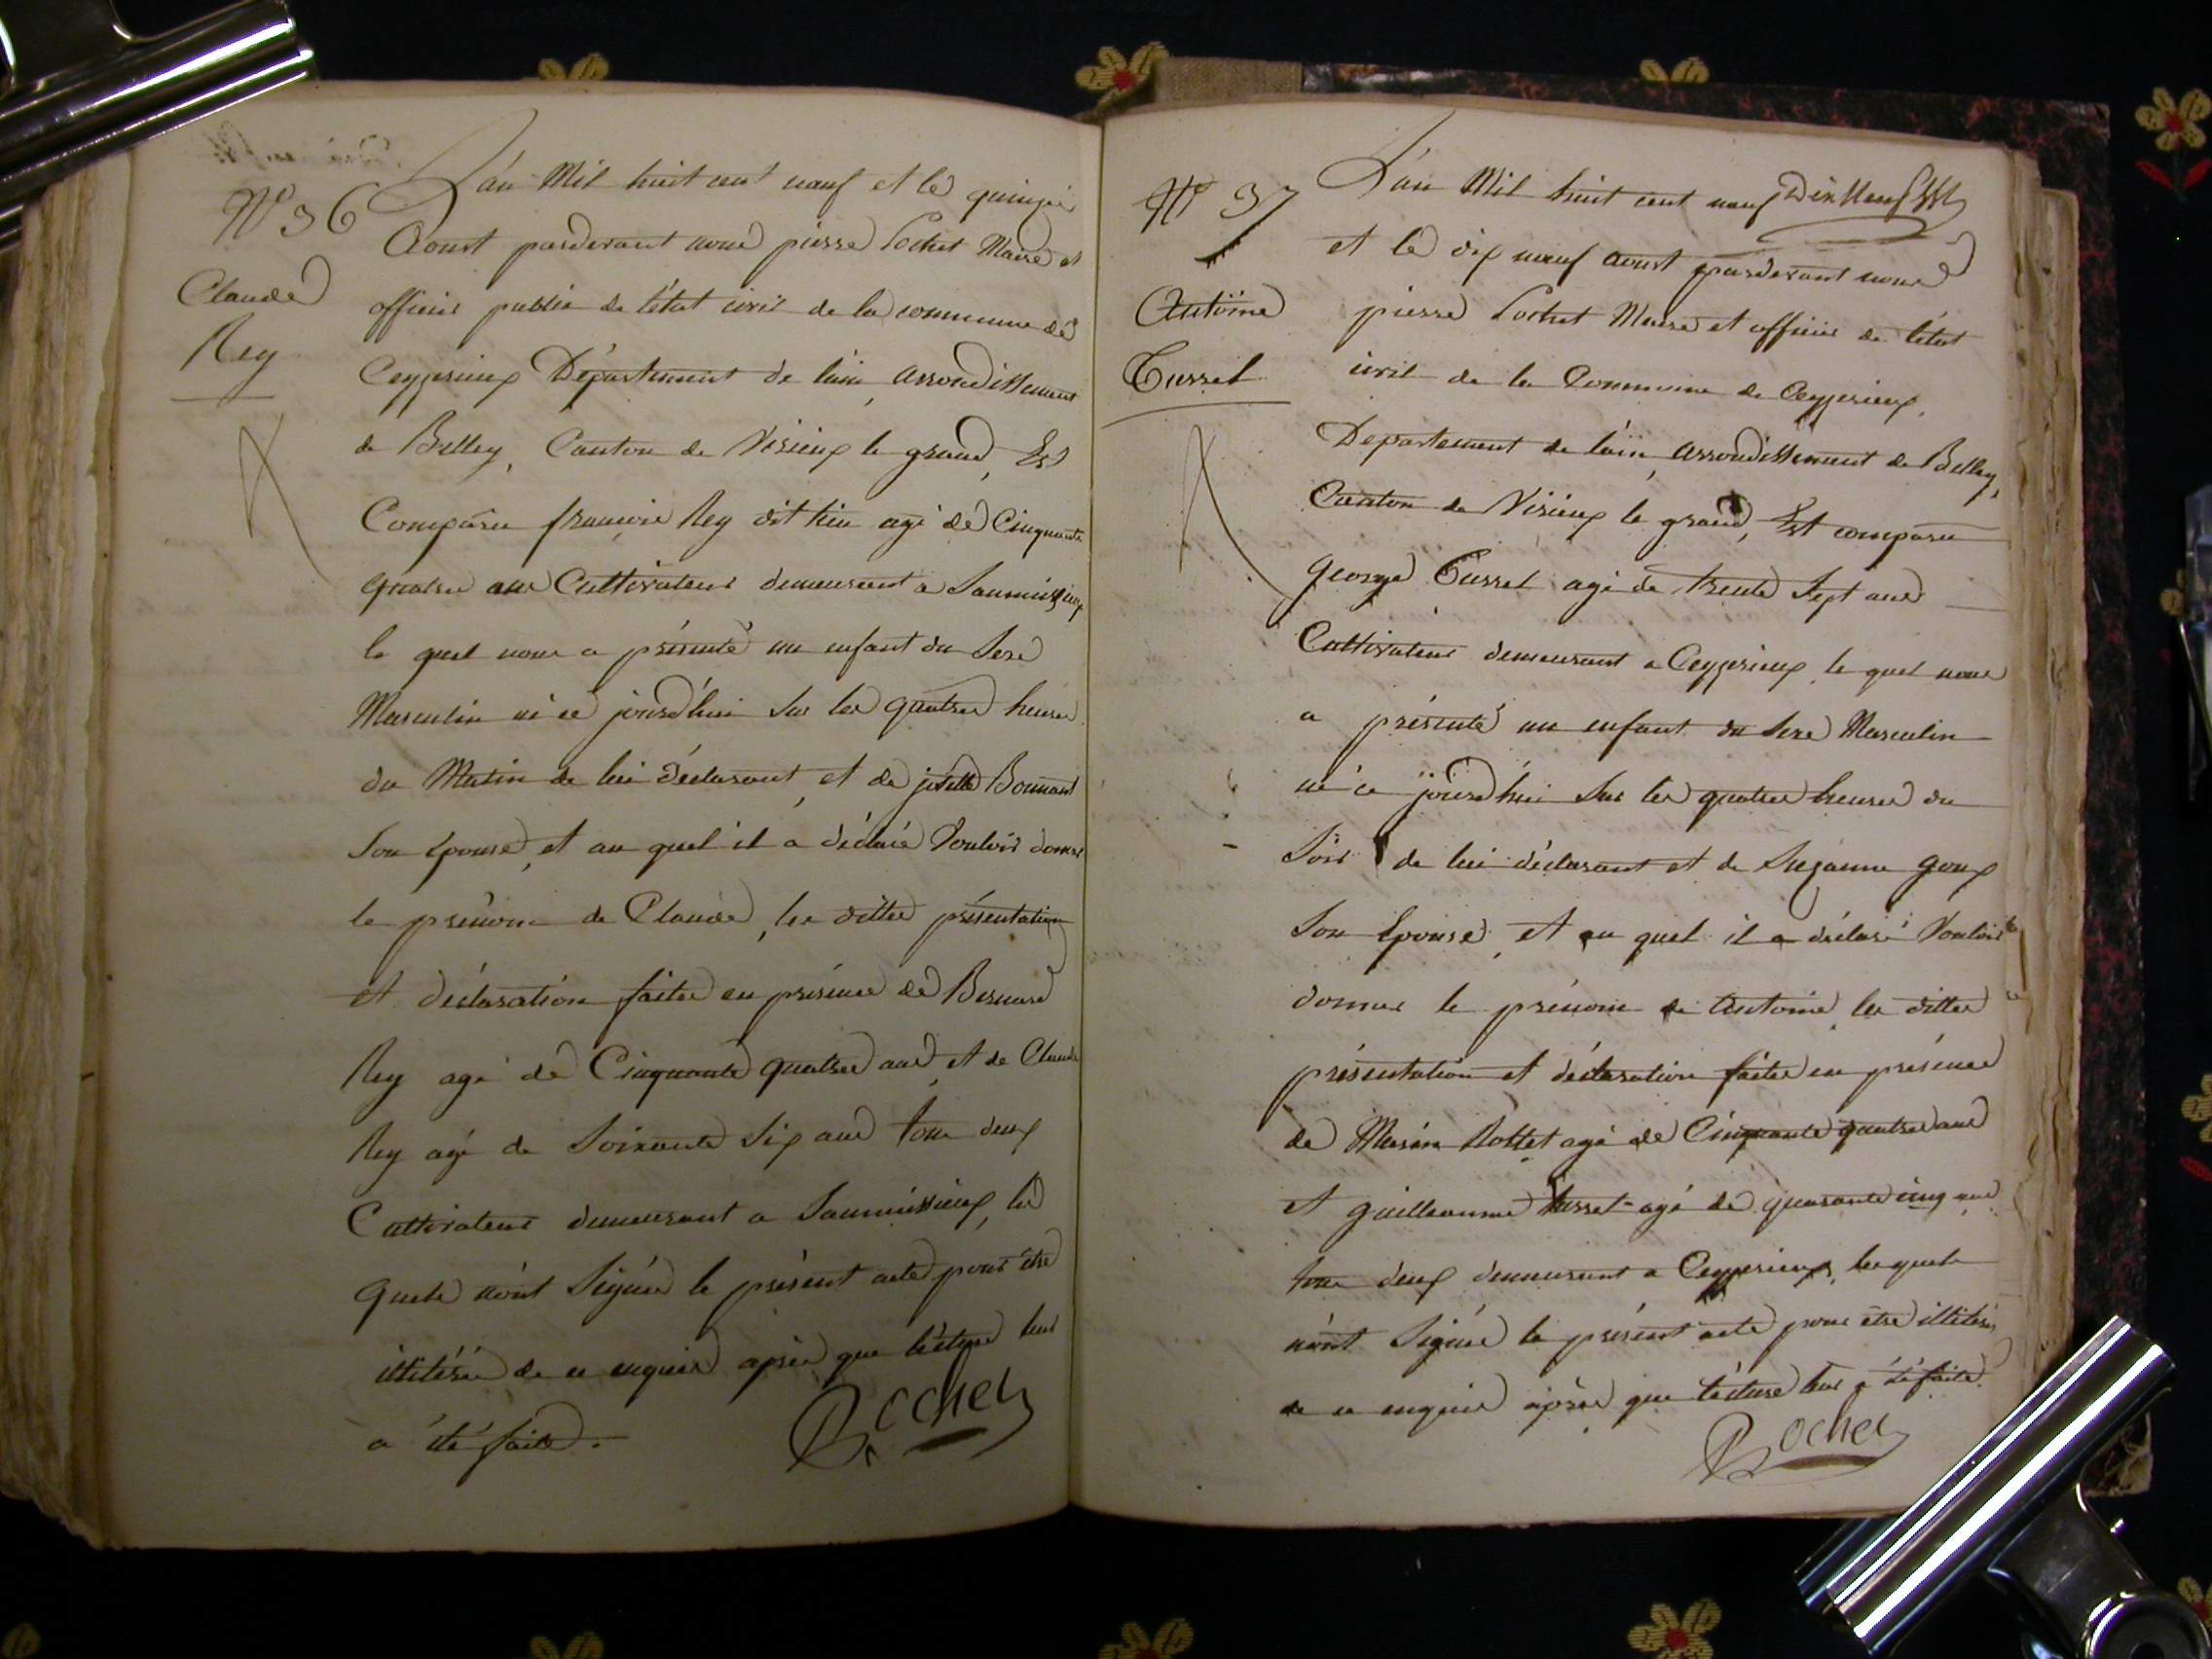 N° 36
Claude
Rey
L'an Mil huit cent neuf et le quinze
Aoust pardevant nous pierre Rochet Maire et
officier public de l'état civil de la commune de
Ceyzerieux Département de l'ain, arrondissement
de Belley, Canton de Virieux le grand, Est
Comparu françois Rey dit agé de Cinquante
quatre ans Cultivateur demeurant a
le quel nous a présenté un enfant du Sexe
Masculin né ce jourd'hui Sur les quatre heures
du Matin de lui déclarant, et de josette Bonnard
Son Epouse, et au quel il a déclaré Vouloir donner
le prénom de Claude, les dittes présentation
et déclaration faites en présence de Bernard
Rey agé de Cinquante quatre ans, et de Claude
Rey agé de Soixante Six ans tous deux
Cultivateurs demeurant a les
quels n'ont Signés le présent acte pour être
illitérés de ce enquis après que lecture leur
a été faite.
Rochet
N° 37
Antoine
Cusset
L'an Mil huit cent neuf Dix Neuf
et le dix neuf aoust pardevant nous
pierre Rochet Maire et officier de l'état
civil de la Commune de Ceyzerieux,
Departement de l'ain, arrondissement de Belley,
Canton de Virieux le grand, Est comparu
George Cusset agé de trente Sept ans
Cultivateur demeurant a Ceyzerieux, le quel nous
a présenté un enfant du Sexe Masculin
né ce jourd'hui Sur les quatre heures du
Soir de lui déclarant et de Suzanne goux
Son Epouse, et au quel il a déclaré Vouloir
donner le prénom de Antoine, les dittes
présentation et déclaration faites en présence
de Marin agé de Cinquante quatre ans
et guillaume Cusset agé de quarante cinq ans
tous deux demeurant a Ceyzerieux, lesquels
n'ont Signés le présent acte pour être illitérés
de ce enquis après que lecture leur a été faite.
Rochet